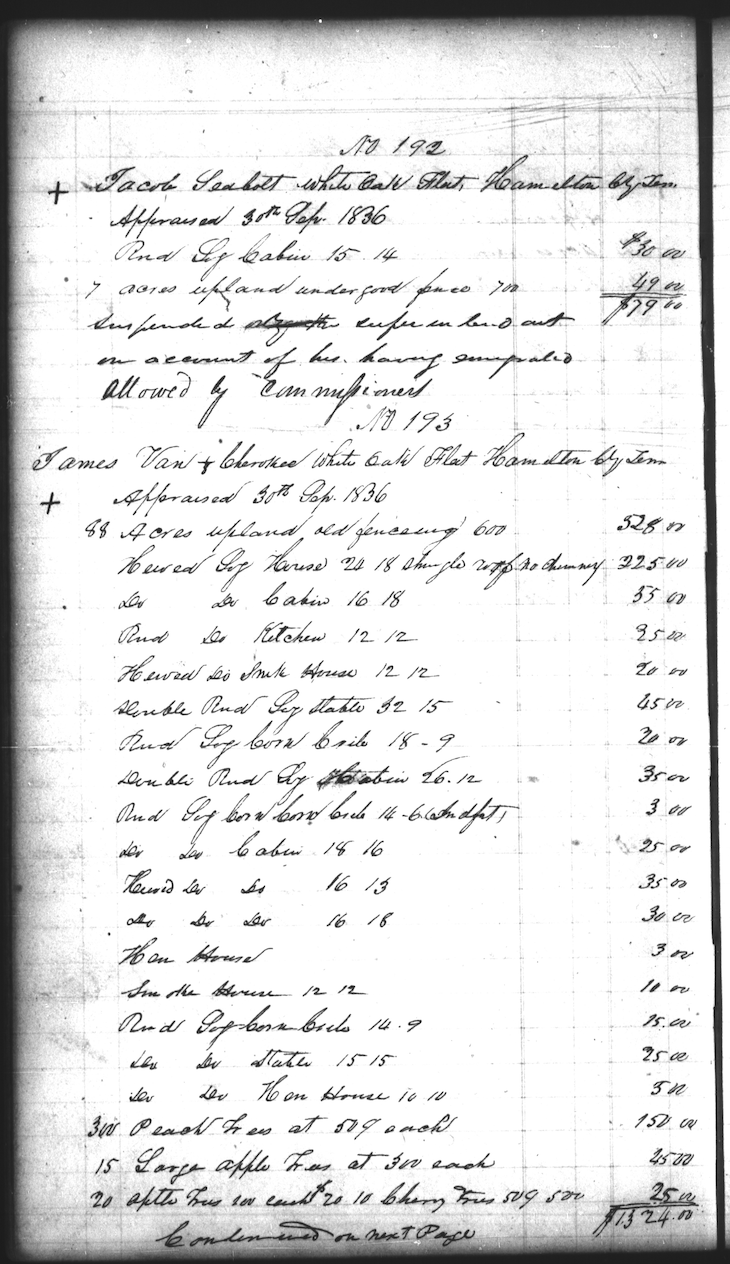 No 192
+ Jacob Seabolt White Oak Flat, Hamelton Cty Ten.
Appraised 30th Sep. 1836
Rnd Log Cabin 15 14 $30 00
7 acres upland under good fence 700 49 00
$79 00
Suspended superintend ant
on account of his having emigrated
allowed by Commissioners
No 193
James Van Cherokee White Oak Flat Hamelton Cty Tenn
+ Appraised 30th Sep. 1836
88 Acres upland old fenceing 600 528 00
Hewed Log House 24 18 Shingle roof no chimney 225 00
Do Do Cabin 16 18 55 00
Rnd Do Kitchen 12 12 25 00
Hewed Do Smk House 12 12 20 00
Double Rnd Log Stable 32 15 45 00
Rnd Log Corn Crib 18-9 20 00
Double Rnd Log Cabin 26.12 35 00
Rnd Log Corn Corn Crib 14-6 3 00
Do Do Cabin 18 16 25 00
Hewd Do Do 16 13 35 00
Do Do Do 16 18 30 00
Hen House 3 00
Smoke House 12 12 10 00
Rnd Log Corn Crib 14.9 15.00
Do Do Stable 15 15 25 00
Do Do Hen House 10 10 5 00
300 Peach Trees at 50¢ each 150 00
15 Large apple Trees at 300 each 45 00
20 aple Trees 100 each $20 10 Cherry Trees 50¢ 500 25 00
$1324.00
Conteneued on next Page